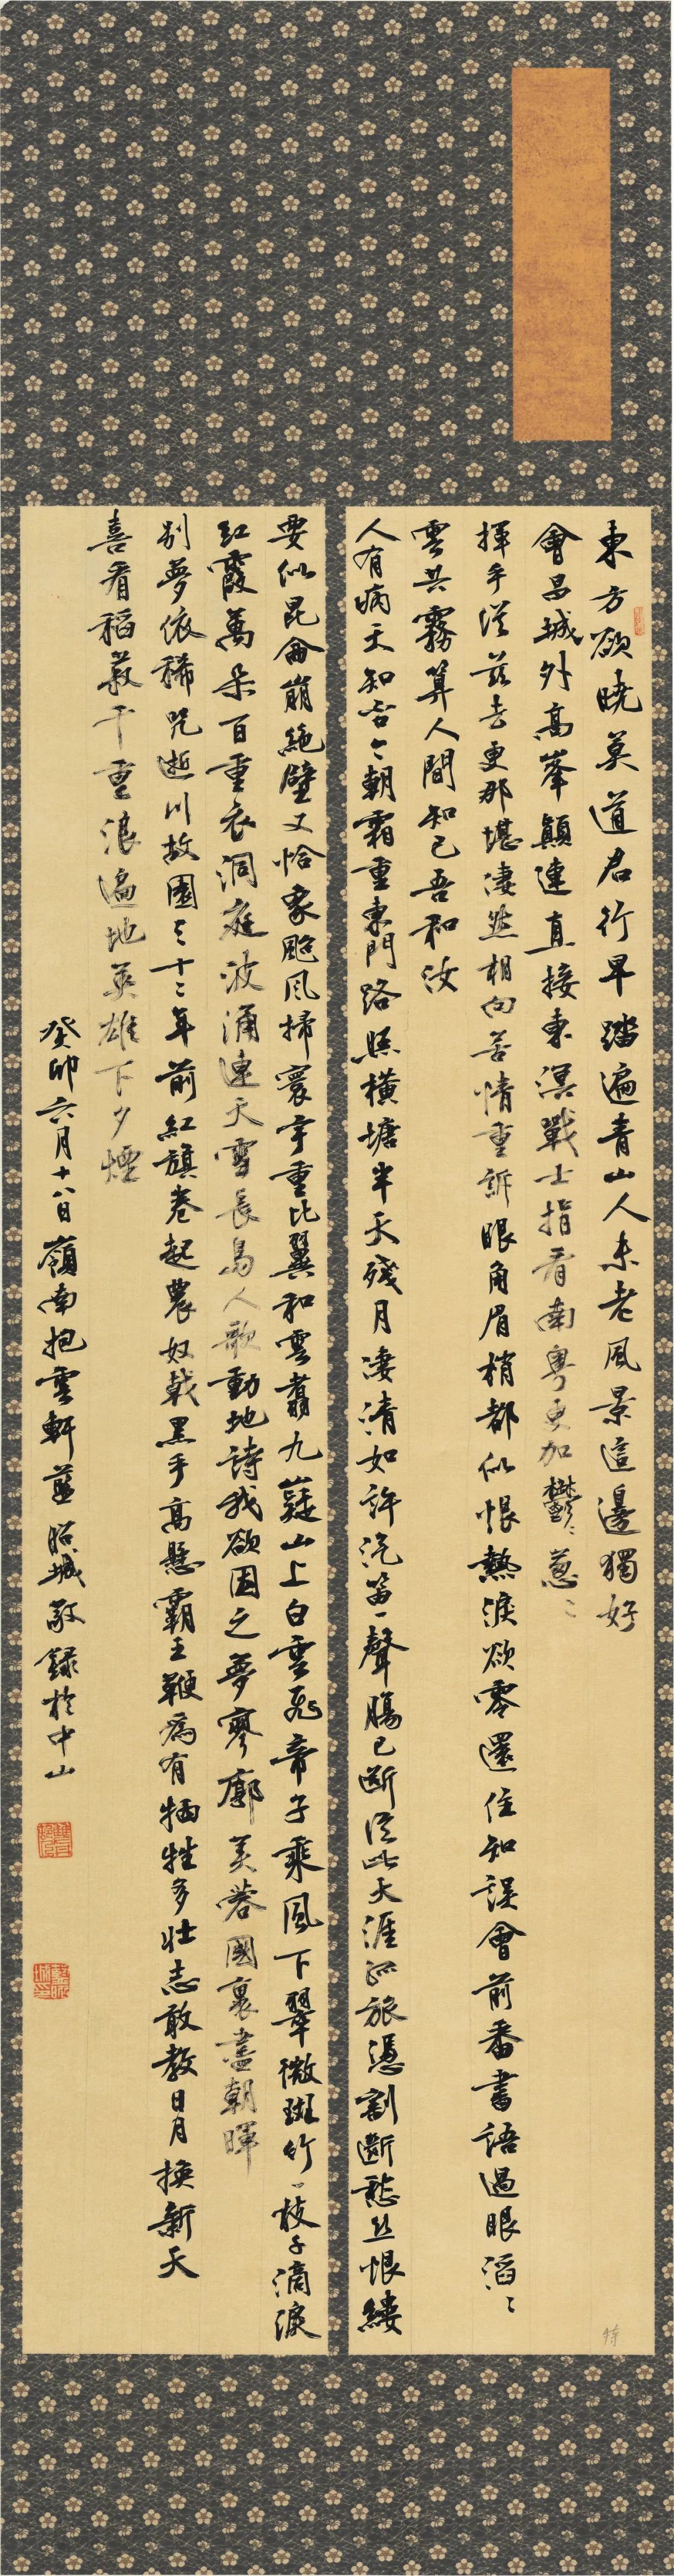 東方欲曉莫道君行早踏遍青山人未老風景這邊獨好
會昌城外高峯顛連直接東溟戰士指看南粵更加鬱〻蔥〻
揮手從茲去更那堪淒然相向苦情重訴眼角眉梢都似恨熱淚欲零還住知誤會前番書語過眼滔〻
雲共霧算人間知己吾和汝
人有病天知否今朝霜重東門路照橫塘半天殘月淒清如許汽笛一聲腸已斷從此天涯孤旅憑割斷愁絲恨縷
要似昆侖崩絕壁又恰象颱風掃寰宇重比翼和雲翥九嶷山上白雲飛帝子乘風下翠微斑竹一枝千滴淚
紅霞萬朵百重衣洞庭波涌連天雪長島人歌動地詩我欲因之夢寥廓芙蓉國裏盡朝暉
別夢依稀咒逝川故園三十二年前紅旗卷起農奴戟黑手高懸霸主鞭為有犧牲多壯志敢教日月換新天
喜看稻菽千重浪遍地英雄下夕煙
癸卯六月十八日嶺南抱雲軒藍昭城敬錄於中山
特